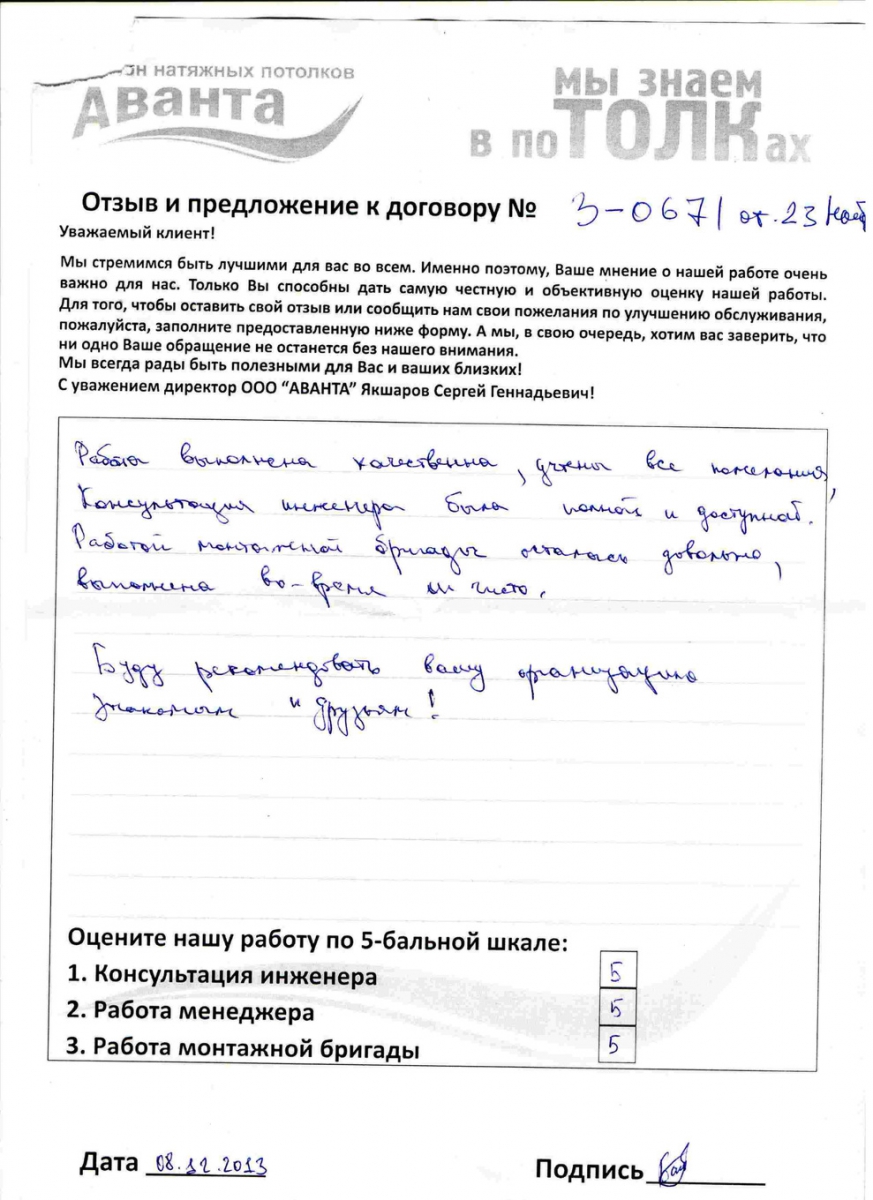 он натяжных потолков
Аванта
мы знаем
в поТОЛКах
Отзыв и предложение к договору № 3-0671 от. 23 нояб
Уважаемый клиент!
Мы стремимся быть лучшими для вас во всем. Именно поэтому, Ваше мнение о нашей работе очень
важно для нас. Только Вы способны дать самую честную и объективную оценку нашей работы.
Для того, чтобы оставить свой отзыв или сообщить нам свои пожелания по улучшению обслуживания,
пожалуйста, заполните предоставленную ниже форму. А мы, в свою очередь, хотим вас заверить, что
ни одно Ваше обращение не останется без нашего внимания.
Мы всегда рады быть полезными для Вас и ваших близких!
С уважением директор ООО “АВАНТА” Якшаров Сергей Геннадьевич!
Работа выполнена качественна, учтены все пожелания,
Консультация инженера была полной и доступной.
Работой монтажной бригады осталась довольна,
выполнена во-время и чисто.
Буду рекомендовать вашу организацию
знакомым и друзьям!
Оцените нашу работу по 5-бальной шкале:
1. Консультация инженера 5
2. Работа менеджера 5
3. Работа монтажной бригады 5
Дата 08.12.2013 Подпись